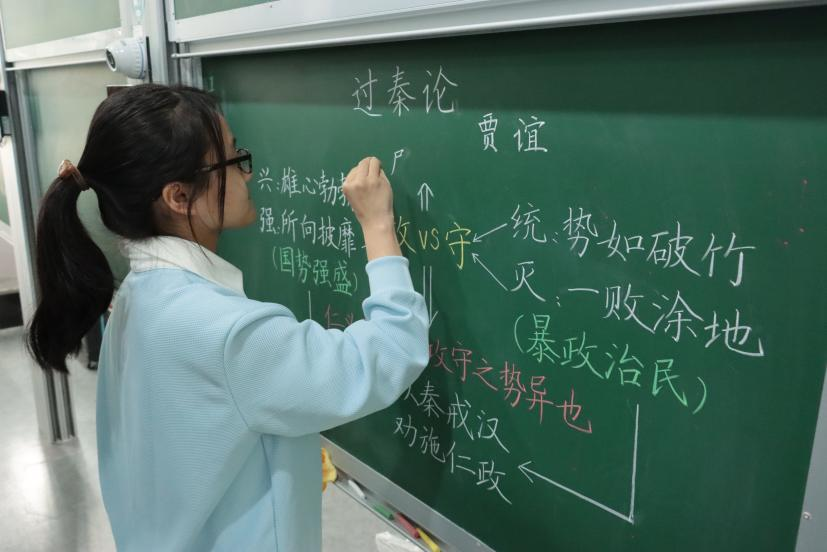 过秦论
贾谊
尸
兴:雄心勃勃
强:所向披靡
(国势强盛)
攻 vs 守
统:势如破竹
灭:一败涂地
(暴政治民)
仁义
攻守之势异也
以秦戒汉
劝施仁政